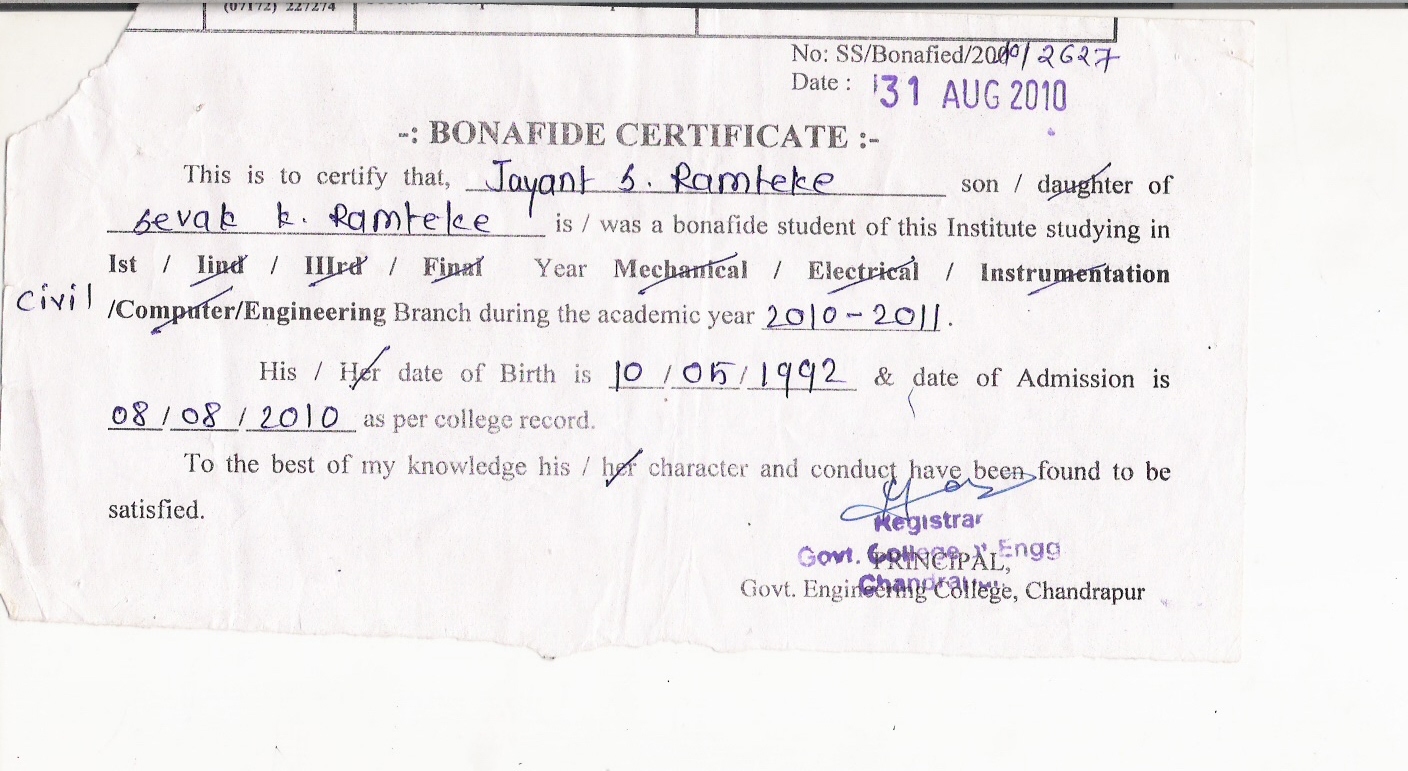 (07172) 227274
No: SS/Bonafied/2010/2627
Date : 31 AUG 2010
-: BONAFIDE CERTIFICATE :-
This is to certify that, Jayant S. Ramteke son / daughter of
Sevak k. Ramteke is / was a bonafide student of this Institute studying in
Ist / Iind / IIIrd / Final Year Mechanical / Electrical / Instrumentation
Civil /Computer/Engineering Branch during the academic year 2010-2011.
His / Her date of Birth is 10 / 05 / 1992 & date of Admission is
08 / 08 / 2010 as per college record.
To the best of my knowledge his / her character and conduct have been found to be
satisfied.
Registrar
Govt. College Engg
PRINCIPAL,
Govt. Engineering College, Chandrapur